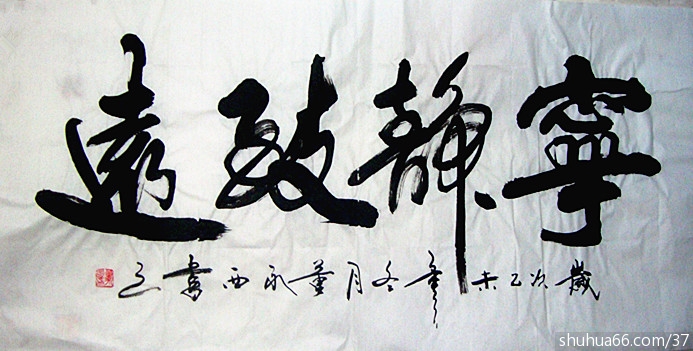 寧靜致遠
歲次乙未年冬月董永西書之
shuhua66.com/37